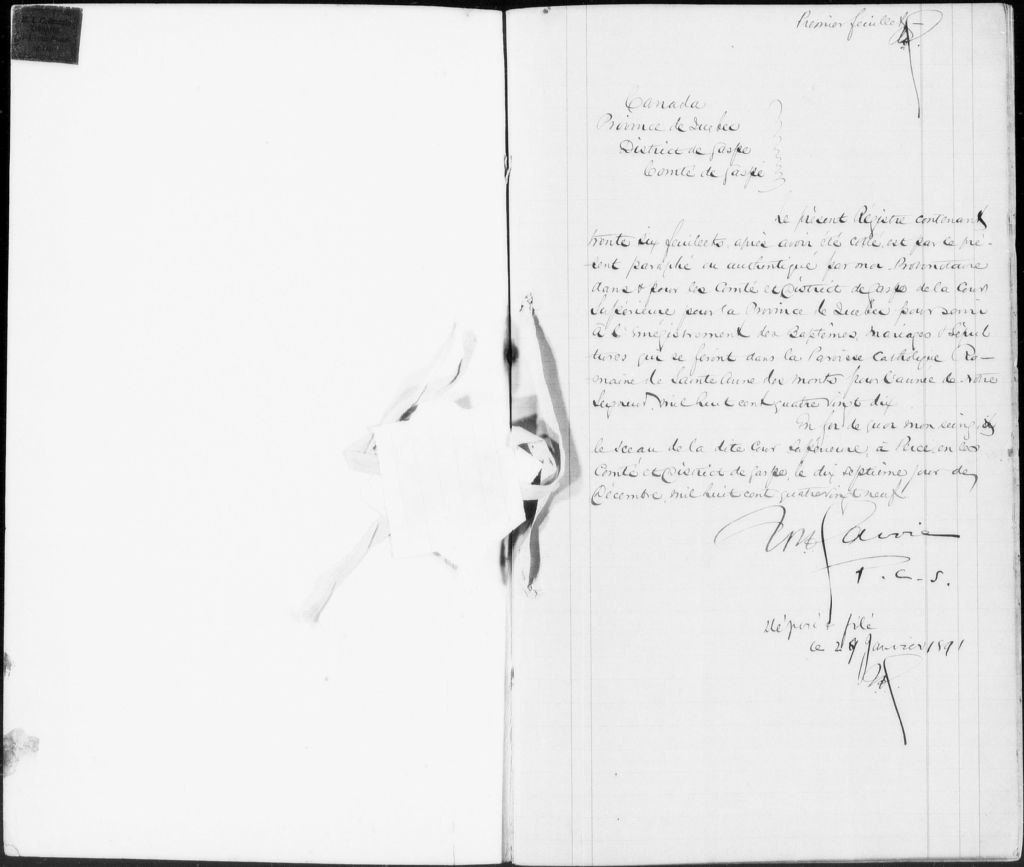 Premier feuillet
Canada
Province de Quebec
District de Gaspe
Comté de Gaspé
Le présent Régistre contenant
trente six feuillets, après avoir été cotté, est par le pré-
sent paraphé ou authentiqué par moi Protonotaire
dans & pour les Comté et District de Gaspe de la Cour
Supérieure pour la Province de Quebec pour servir
à l'Enrégistrement des Baptêmes, Mariages & Sépul
tures qui se feront dans la Paroisse Catholique Ro-
maine de Sainte Anne des Monts pour l'année de Notre
Seigneur, mil huit cent quatre vingt dix
En foi de quoi mon seing &
le sceau de la dite Cour Supérieure, à Percé, en les
Comté et District de Gaspe, le dix septième jour de
Décembre, mil huit cent quatre vingt neuf
Lavoie
P. C. S.
déposé & filé
le 29 Janvier 1891